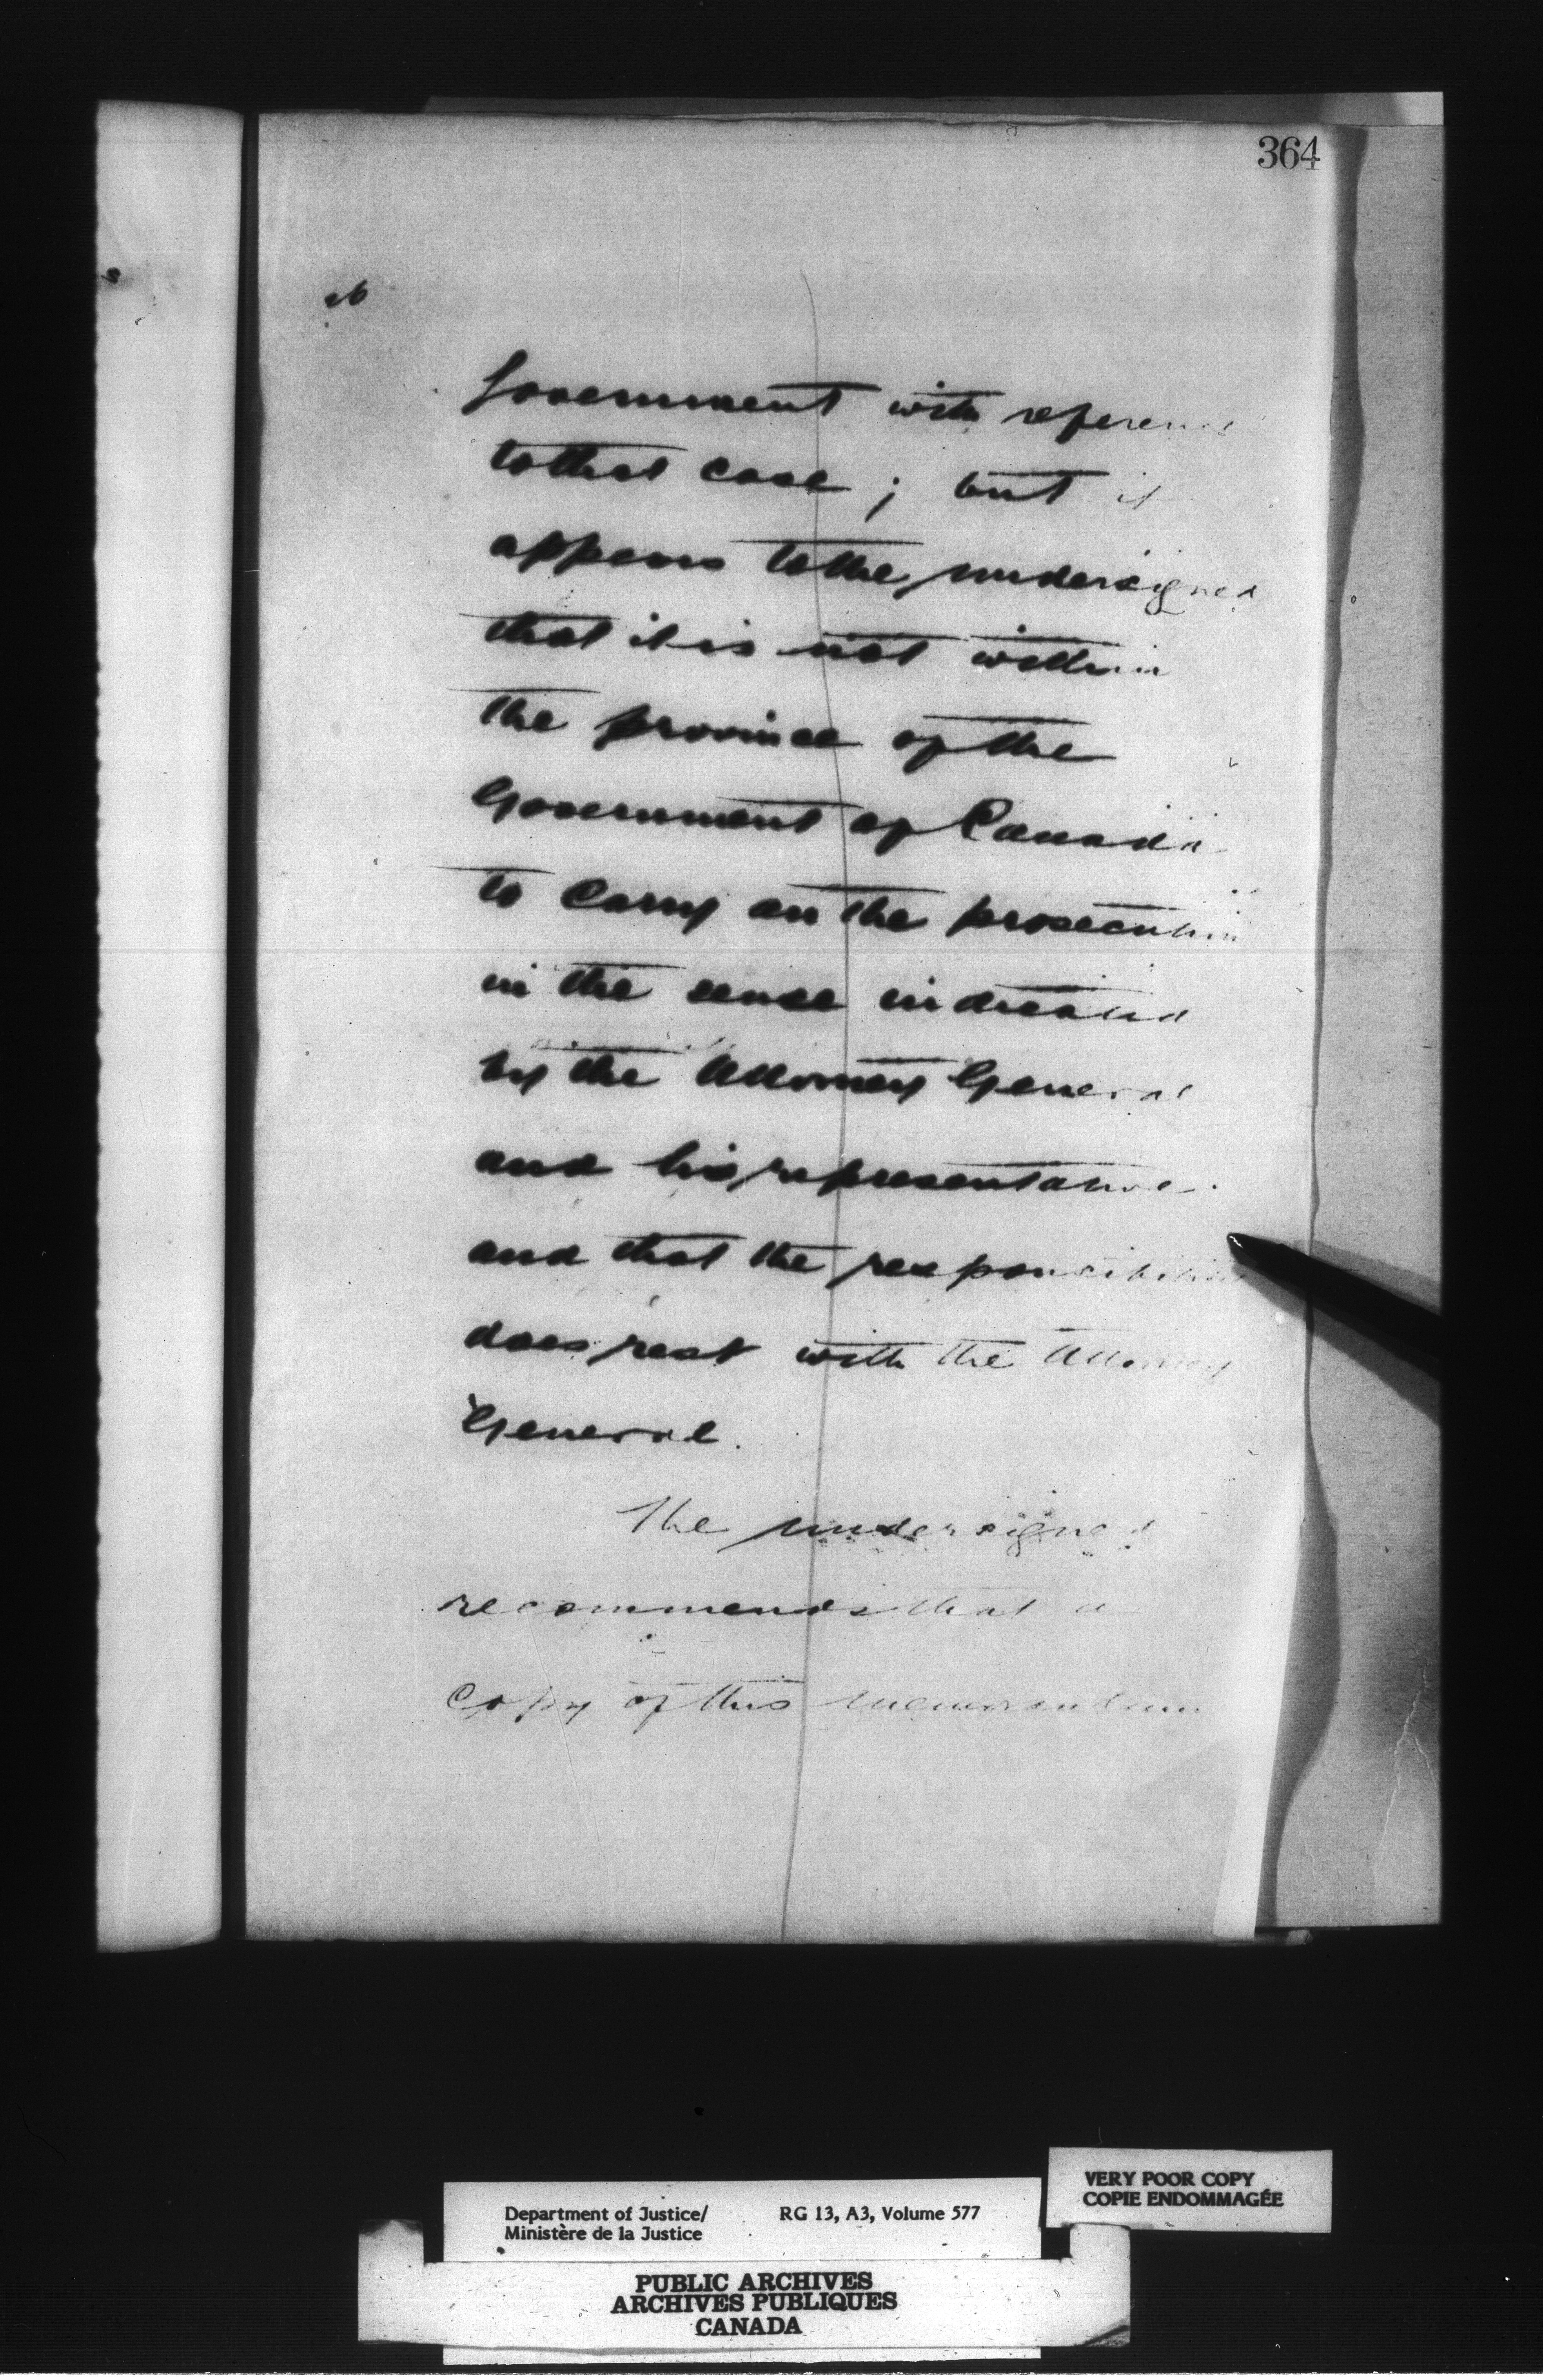 364
Government with reference
to that case; but it
appears to the undersigned
that it is not within
the province of the
Government of Canada
to carry on the prosecution
in the sense indicated
by the Attorney General
and his representative
and that the responsibility
does rest with the Attorney
General.
The undersigned
recommends that a
copy of this memorandum
VERY POOR COPY
COPIE ENDOMMAGÉE
Department of Justice/ RG 13, A3, Volume 577
Ministère de la Justice
PUBLIC ARCHIVES
ARCHIVES PUBLIQUES
CANADA